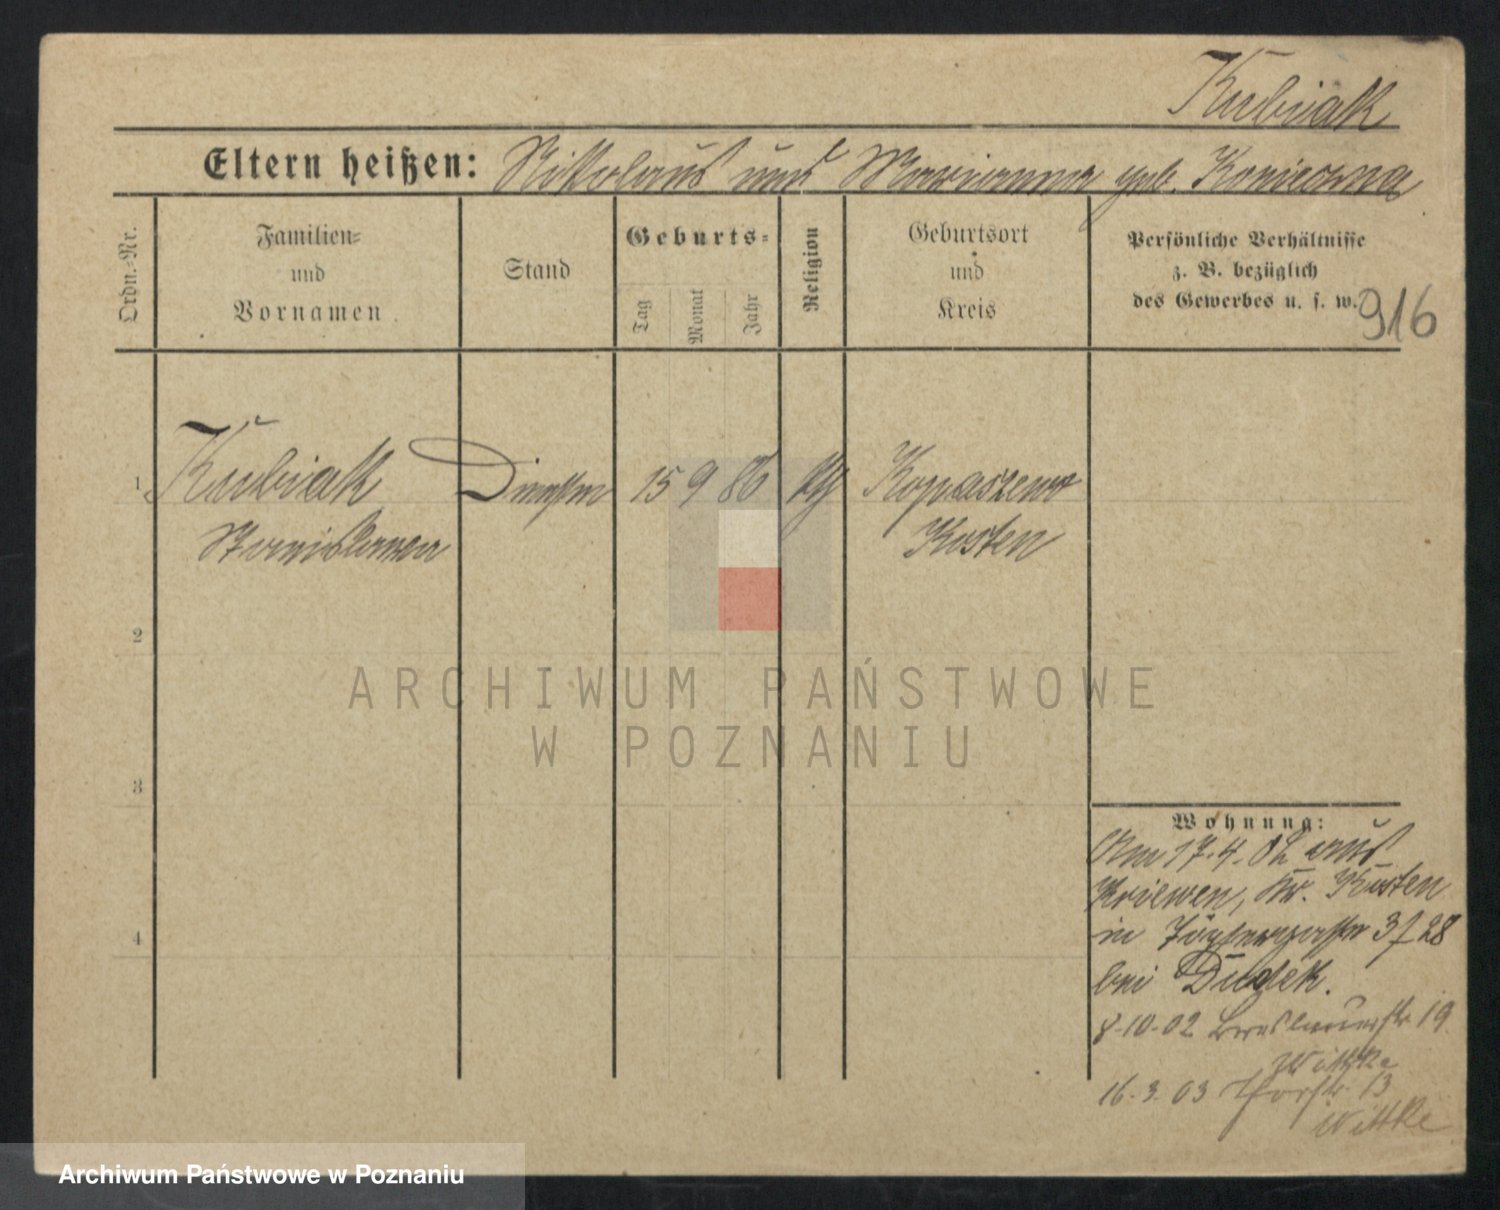 Kubiak
Eltern heißen: Nikolaus und Marianna geb. Konieczna
Ordn.-Nr.
Familien-
und
Vornamen
Stand
Geburts-
Tag
Monat
Jahr
Religion
Geburtsort
und
Kreis
Persönliche Verhältnisse
z. B. bezüglich
des Gewerbes u. s. w.
916
1 Kubiak 15 9 86 Kopaszewo
Stanislawa Kosten
2
3
4
ARCHIWUM PAŃSTWOWE
W POZNANIU
Wohnung:
Am 17.4.02 aus
Kriewen, Kr. Kosten
in 28
bei Dudek.
8.10.02 Breslauerstr 19
Wittke
16.3.03 13
Wittke
Archiwum Państwowe w Poznaniu